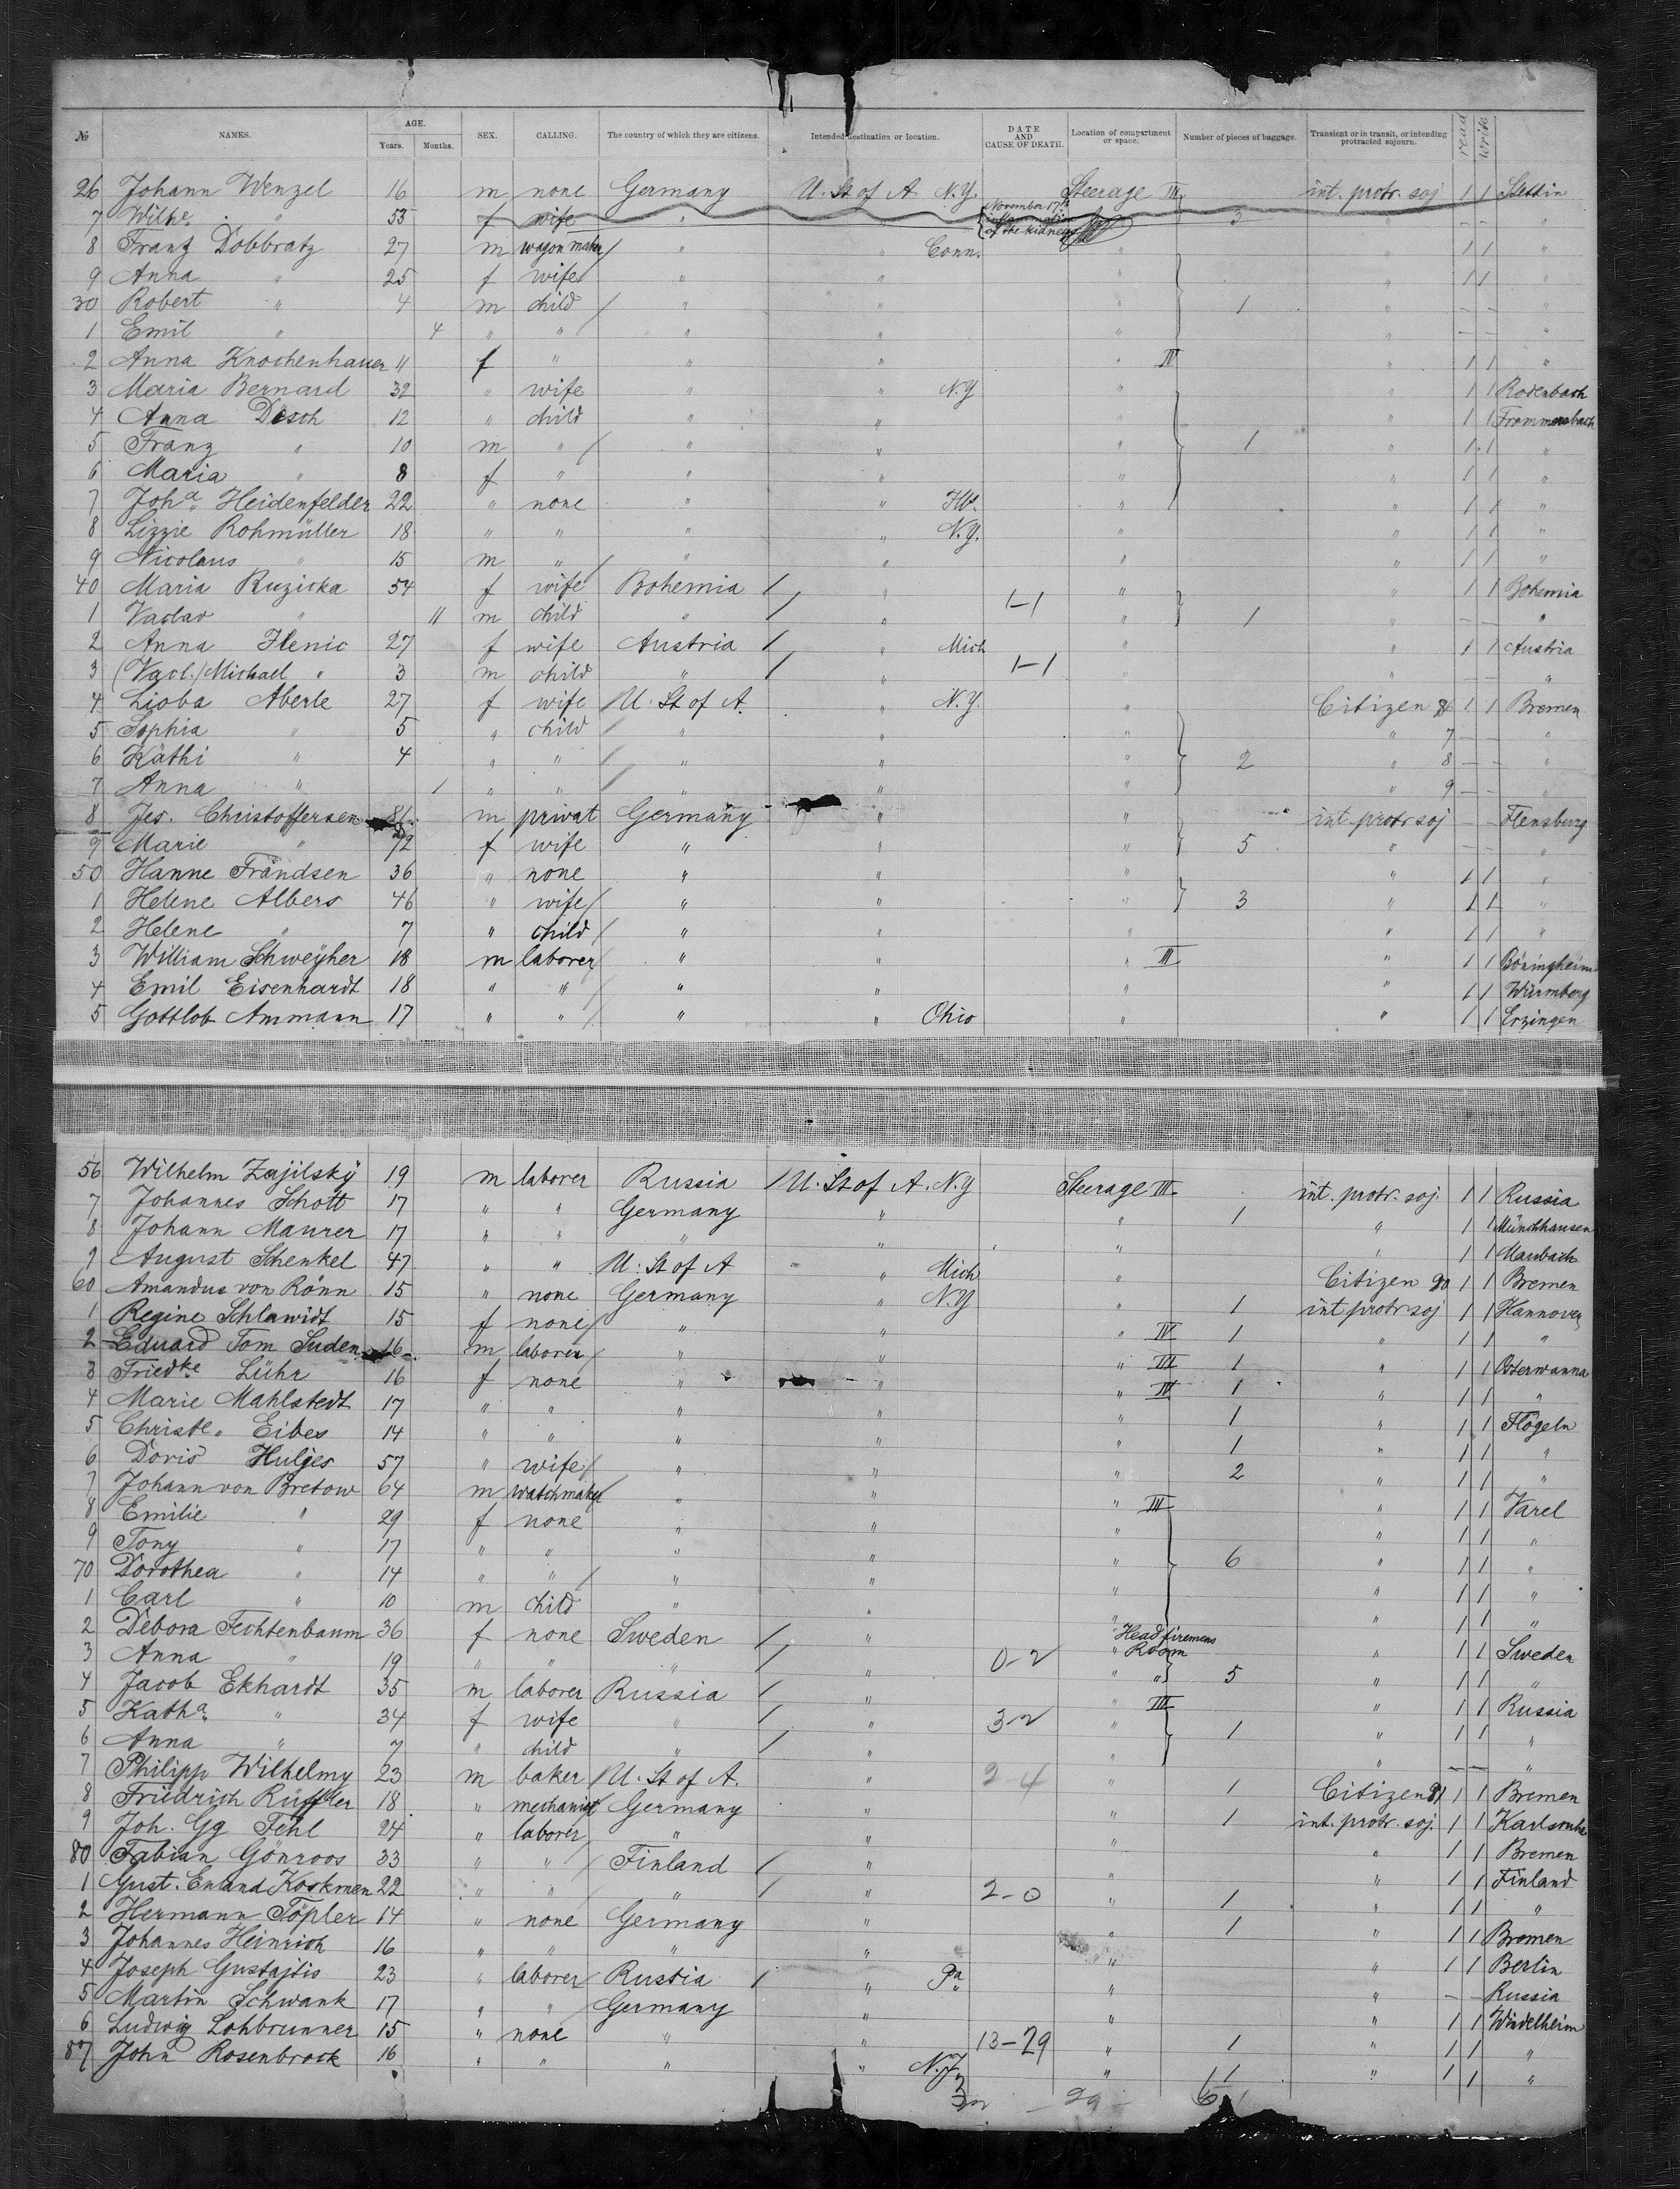 № NAMES. AGE. Years. Months. SEX. CALLING. The country of which they are citizens. Intended destination or location. DATE AND CAUSE OF DEATH. Location of compartment or space. Number of pieces of baggage. Transient or in transit, or intending protracted sojourn. read write
26 Johann Wenzel 16 m none Germany U. St of A N.Y. Steerage III int. protr. soj 1 1 Stettin
7 Wilhe. " 55 f wife " November 17th inflammation of the kidneys 3 " — "
8 Franz Dobbratz 27 m wagon maker " " Conn. " " 1 1 "
9 Anna " 25 f wife " " " " 1 1 "
30 Robert " 4 m child " " " 1 " — — "
1 Emil " 4 " " " " " " — — "
2 Anna Knochenhauer 11 f " " " " IV " 1 1 "
3 Maria Bernard 32 " wife " " N.Y " " 1 1 Rodenbach
4 Anna Desch 12 " child " " " " 1 1 Frommersbach
5 Franz " 10 m " " " " 1 " 1 1 "
6 Maria " 8 f " " " " " 1 1 "
7 Joha. Heidenfelder 22 " none " " Ill. " " 1 1 "
8 Lizzie Rohmüller 18 " " " " N.Y. " " 1 1 "
9 Nicolaus " 15 m " " " " " 1 1 "
40 Maria Ruzicka 54 f wife Bohemia " " " 1 1 Bohemia
1 Vaclav " 11 m child " " 1-1 " 1 " — — "
2 Anna Hlenic 27 f wife Austria " Mich " " 1 1 Austria
3 (Vacl.) Michael " 3 m child " " 1-1 " " — — "
4 Lioba Aberle 27 f wife U. St of A. " N.Y. " Citizen 86 1 1 Bremen
5 Sophia " 5 " child " " " " 7 — — "
6 Käthi " 4 " " " " " 2 " 8 — — "
7 Anna " 1 " " " " " " 9 — — "
8 Jes. Christoffersen 81 m privat Germany " " int protr soj — — Flensburg
9 Marie " 72 f wife " " " 5 " — — "
50 Hanne Frandsen 36 " none " " " " 1 1 "
1 Helene Albers 46 " wife " " " 3 " 1 1 "
2 Helene " 7 " child " " " " 1 1 "
3 William Schweyher 18 m laborer " " " III " 1 1 Böningheim
4 Emil Eisenhardt 18 " " " " " " 1 1 Würmberg
5 Gottlob Ammann 17 " " " " Ohio " " 1 1 Erzingen
56 Wilhelm Zajilsky 19 m laborer Russia U. St of A. N.Y Steerage III int. protr. soj. 1 1 Russia
7 Johannes Schott 17 " " Germany " " 1 " 1 1 Münchhausen
8 Johann Maurer 17 " " " " " " 1 1 Maubach
9 August Schenkel 47 " " U. St of A " Mich " Citizen 90 1 1 Bremen
60 Amandus von Rönn 15 " none Germany " N.Y " 1 int protr soj 1 1 Hannover
1 Regine Schlawidt 15 f none " " " IV 1 " 1 1 "
2 Eduard Tom Suden 16 m laborer " " " III 1 " 1 1 Osterwanna
3 Friedke. Lühr 16 f none " " " IV 1 " 1 1 "
4 Marie Mahlstedt 17 " " " " " 1 " 1 1 Flögeln
5 Christe. Eibes 14 " " " " " 1 " 1 1 "
6 Doris Huljes 57 " wife " " " 2 " 1 1 "
7 Johann von Bretow 64 m watchmaker " " " III " 1 1 Varel
8 Emilie " 29 f none " " " " 1 1 "
9 Tony " 17 " " " " " 6 " 1 1 "
70 Dorothea " 14 " " " " " " 1 1 "
1 Carl " 10 m child " " " " 1 1 "
2 Debora Fechtenbaum 36 f none Sweden " " Head firemens Room " 1 1 Sweden
3 Anna " 19 " " " " 0-2 " " 5 " 1 1 "
4 Jacob Ekhardt 35 m laborer Russia " " III " 1 1 Russia
5 Katha. " 34 f wife " " 3-2 " 1 " 1 1 "
6 Anna " 7 " child " " " " — — "
7 Philipp Wilhelmy 23 m baker U. St of A. " 2-4 " 1 Citizen 91 1 1 Bremen
8 Friedrich Ruffler 18 " mechanist Germany " " 1 int. protr. soj. 1 1 Karlsruhe
9 Joh. Gg Fehl 24 " laborer " " " " 1 1 Bremen
80 Fabian Gönroos 33 " " Finland " " " 1 1 Finland
1 Gust. Enland Koskmen 22 " " " " 2-0 " 1 " 1 1 "
2 Hermann Töpler 14 " none Germany " " 1 " 1 1 Bremen
3 Johannes Heinrich 16 " " " " " " 1 1 Berlin
4 Joseph Gustajtis 23 " laborer Russia " Pa " " — — Russia
5 Martin Schwank 17 " " Germany " " " " 1 1 Windelheim
6 Ludwig Lohbrunner 15 " none " " 13-29 " 1 " 1 1 "
87 John Rosenbrock 16 " " " " N.J. " 1 1 " 1 1 "
29 6